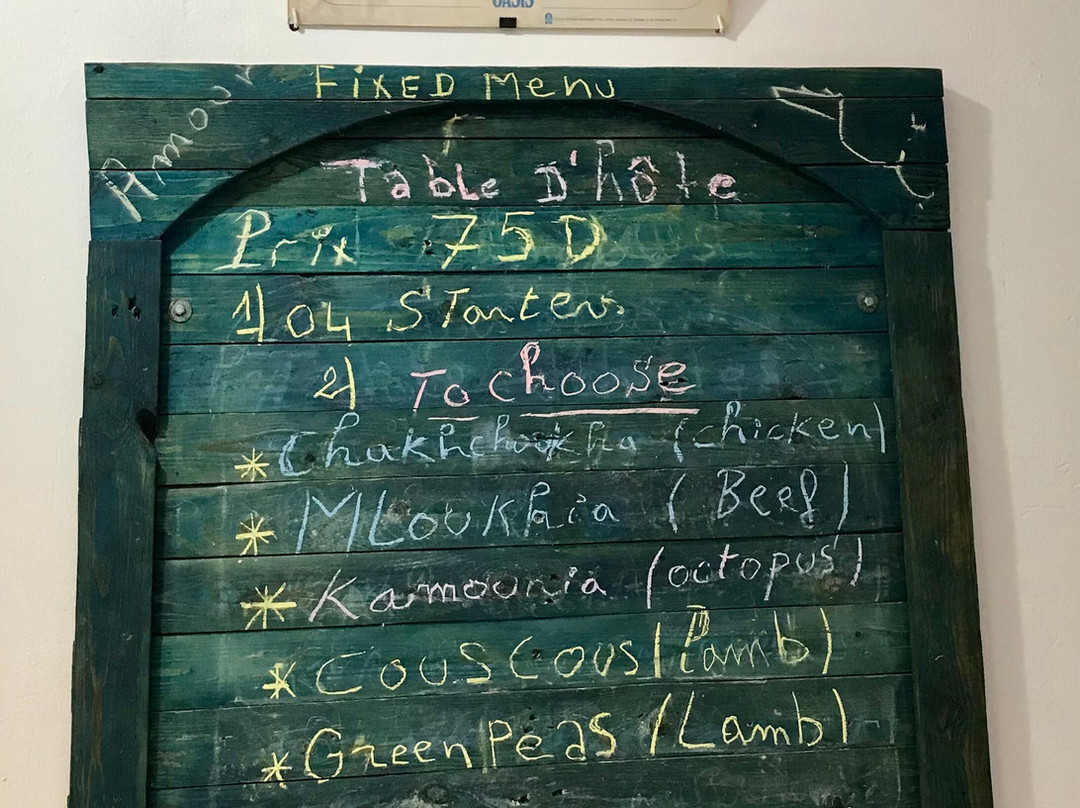 OASIS
FiXED Menu
Amour
Table D'hôte
Prix 75 D
1) 04 STarters
2) To choose
* Chakhchoukha (chicken)
* MLoukhia ( Beef)
* Kamoonia (octopus)
* Couscous (Lamb)
* Green Peas (Lamb)